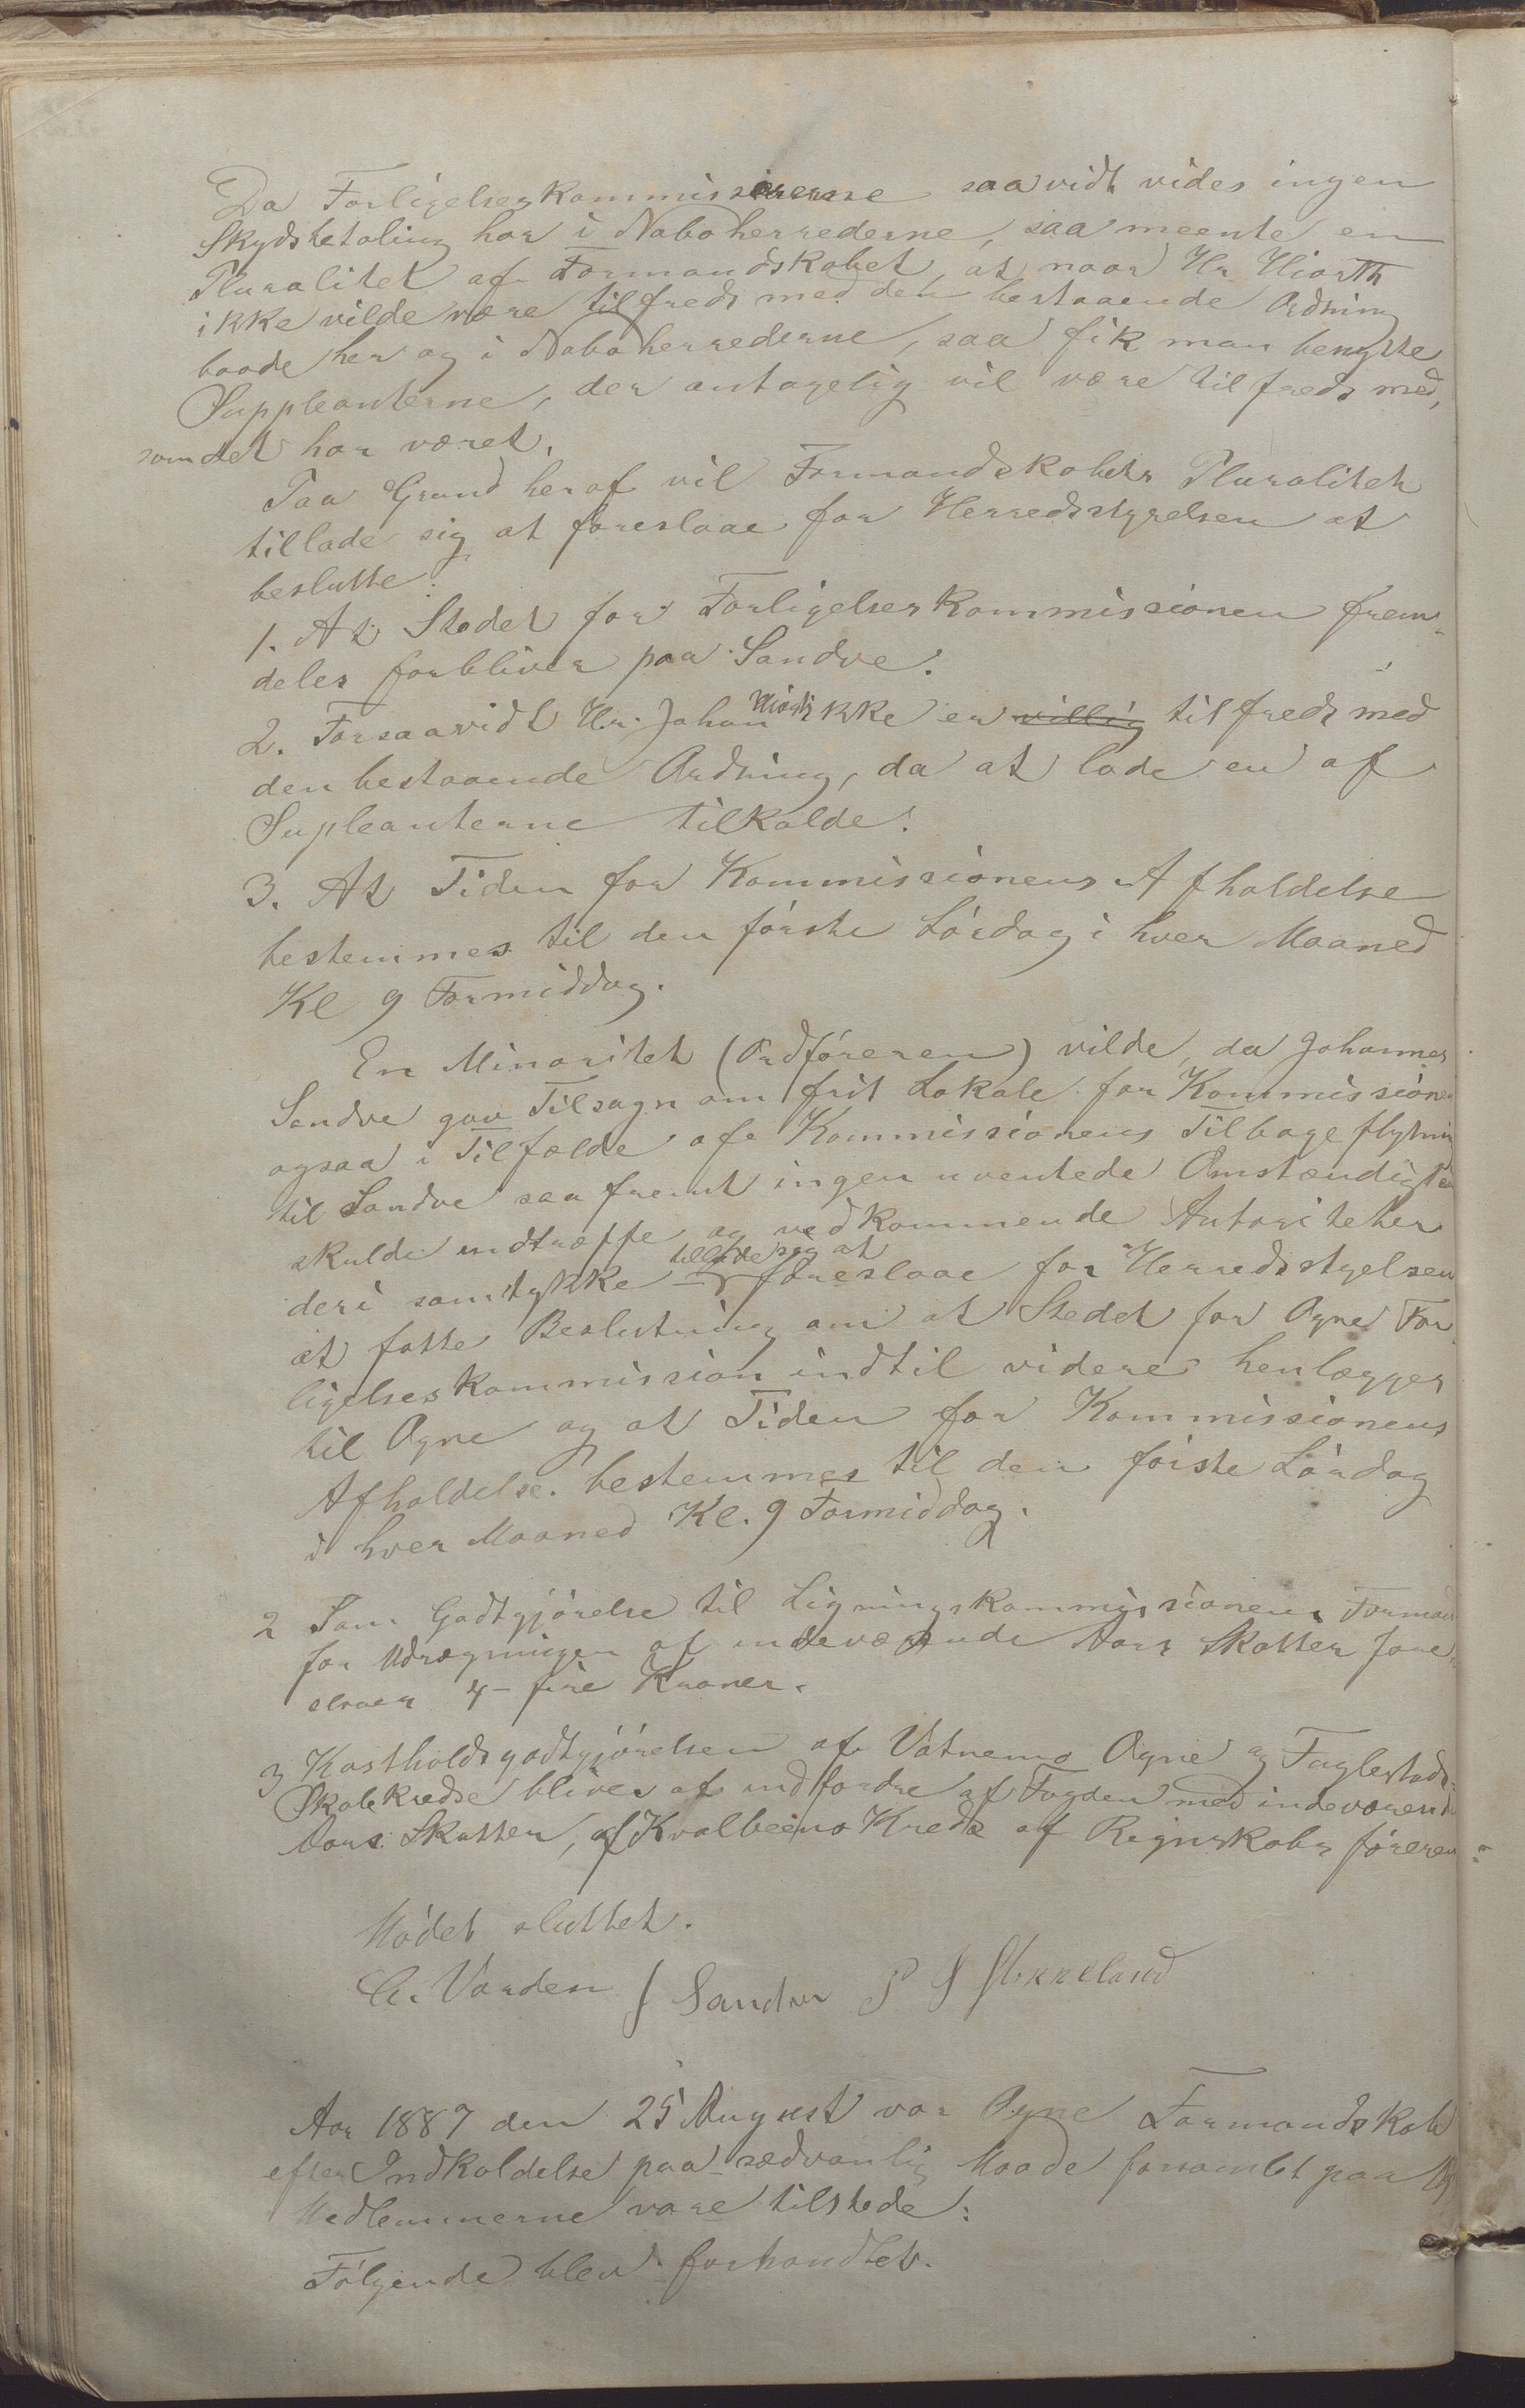 Da Forligelseskommissererne saavidt vides ingen
Skydsbetaling har i Naboherrederne, saa meente en
Pluralitet af Formandskabet, at naar Hr Hiorth
ikke vilde være tilfreds med den bestaaende Ordning
baade her og i Naboherrederne, saa fik man benytte
Suppleanterne, der antagelig vil være tilfreds med,
som det har været.
Paa Grund heraf vil Formandskabets Pluralitet
tillade sig at foreslaae for Herredsstyrelsen at
beslutte:
1. At Stedet for Forligelseskommissionen frem-
deles forbliver paa Sandve.
2. Forsaavidt Hr. Johan Hiorth ikke er villig tilfreds med
den bestaaende Ordning, da at lade en af
Supleanterne tilkalde.
3. At Tiden for Kommissionens Afholdelse
bestemmes til den første Lørdag i hver Maaned
Kl 9 Formiddag.
En Minoritet (Ordføreren) vilde, da Johannes
Sandve gav Tilsagn om frit Lokale for Kommissionen
ogsaa i Tilfælde af Kommissionens Tilbageflytning
til Sandve saa fremt ingen uventede Omstændigh
skulde indtræffe og vedkommende Autoriteter
deri samtykke tillade sig at foreslaae for Herredsstyelsen
at fatte Beslutning om at Stedet for Ogne For-
ligelseskommission indtil videre henlægges
til Ogne og at Tiden for Kommissionens
Afholdelse bestemmes til den første Lørdag
i hver Maaned Kl. 9 Formiddag.
2 Som Godtgjørelse til Ligningskommissionens Formand
for Udregningen af indeværende Aars Skatter fore
slaaes 4 - fire Kroner.
3 Kostholdsgodtgjørelsen af Vatnemo Ogne og Fuglestads
Skolekredse blives at indfordre af Fogden med indeværende
Aars Skatter, af Kvalbeins Kreds af Regnskabsføreren
Mødet sluttet.
C. Varden J Sandve P S Stokkeland
Aar 1887 den 25 August var Ogne Formandskab
efter Indkaldelse paa sædvanlig Maade forsamlet paa
Medlemmerne vare tilstede:
Følgende blev forhandlet.